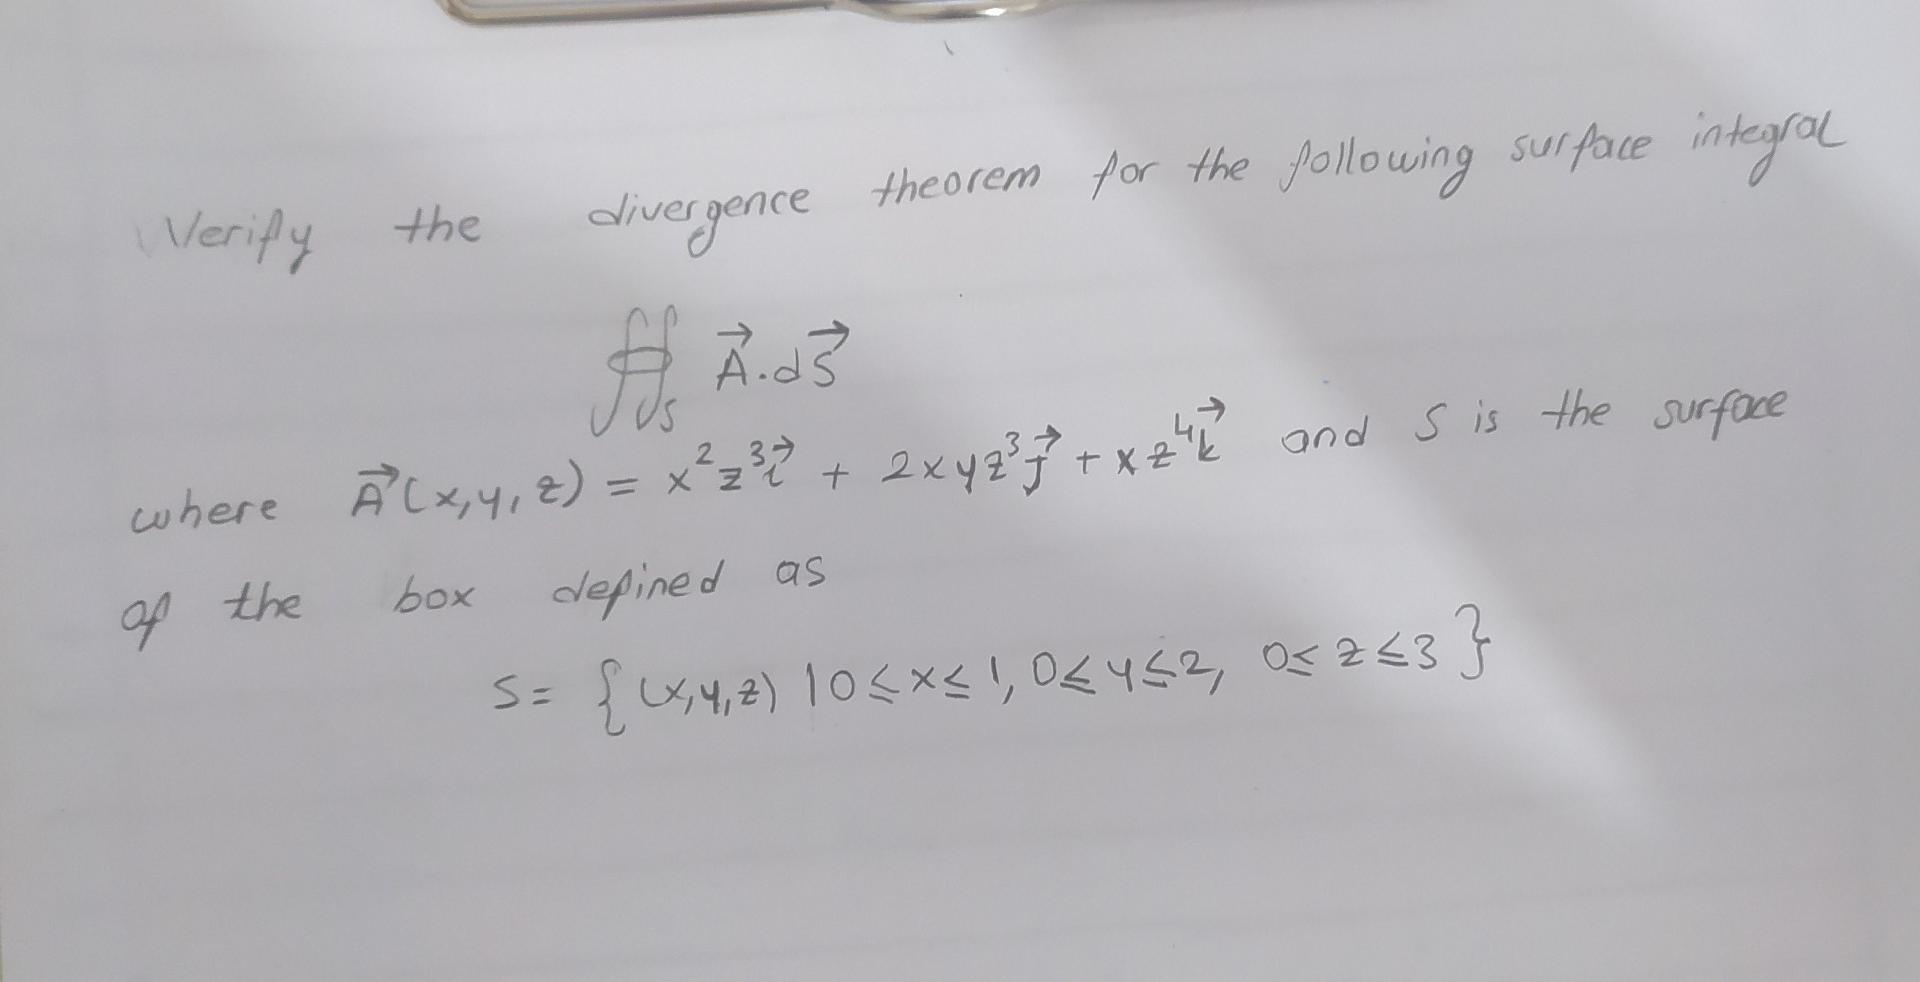 Verify the divergence theorem for the following surface integral
∯_S A⃗.dS⃗
where A⃗(x,y,z) = x²z³i⃗ + 2xyz³j⃗ + xz⁴k⃗ and S is the surface
of the box defined as
S = {(x,y,z) | 0≤x≤1, 0≤y≤2, 0≤z≤3}